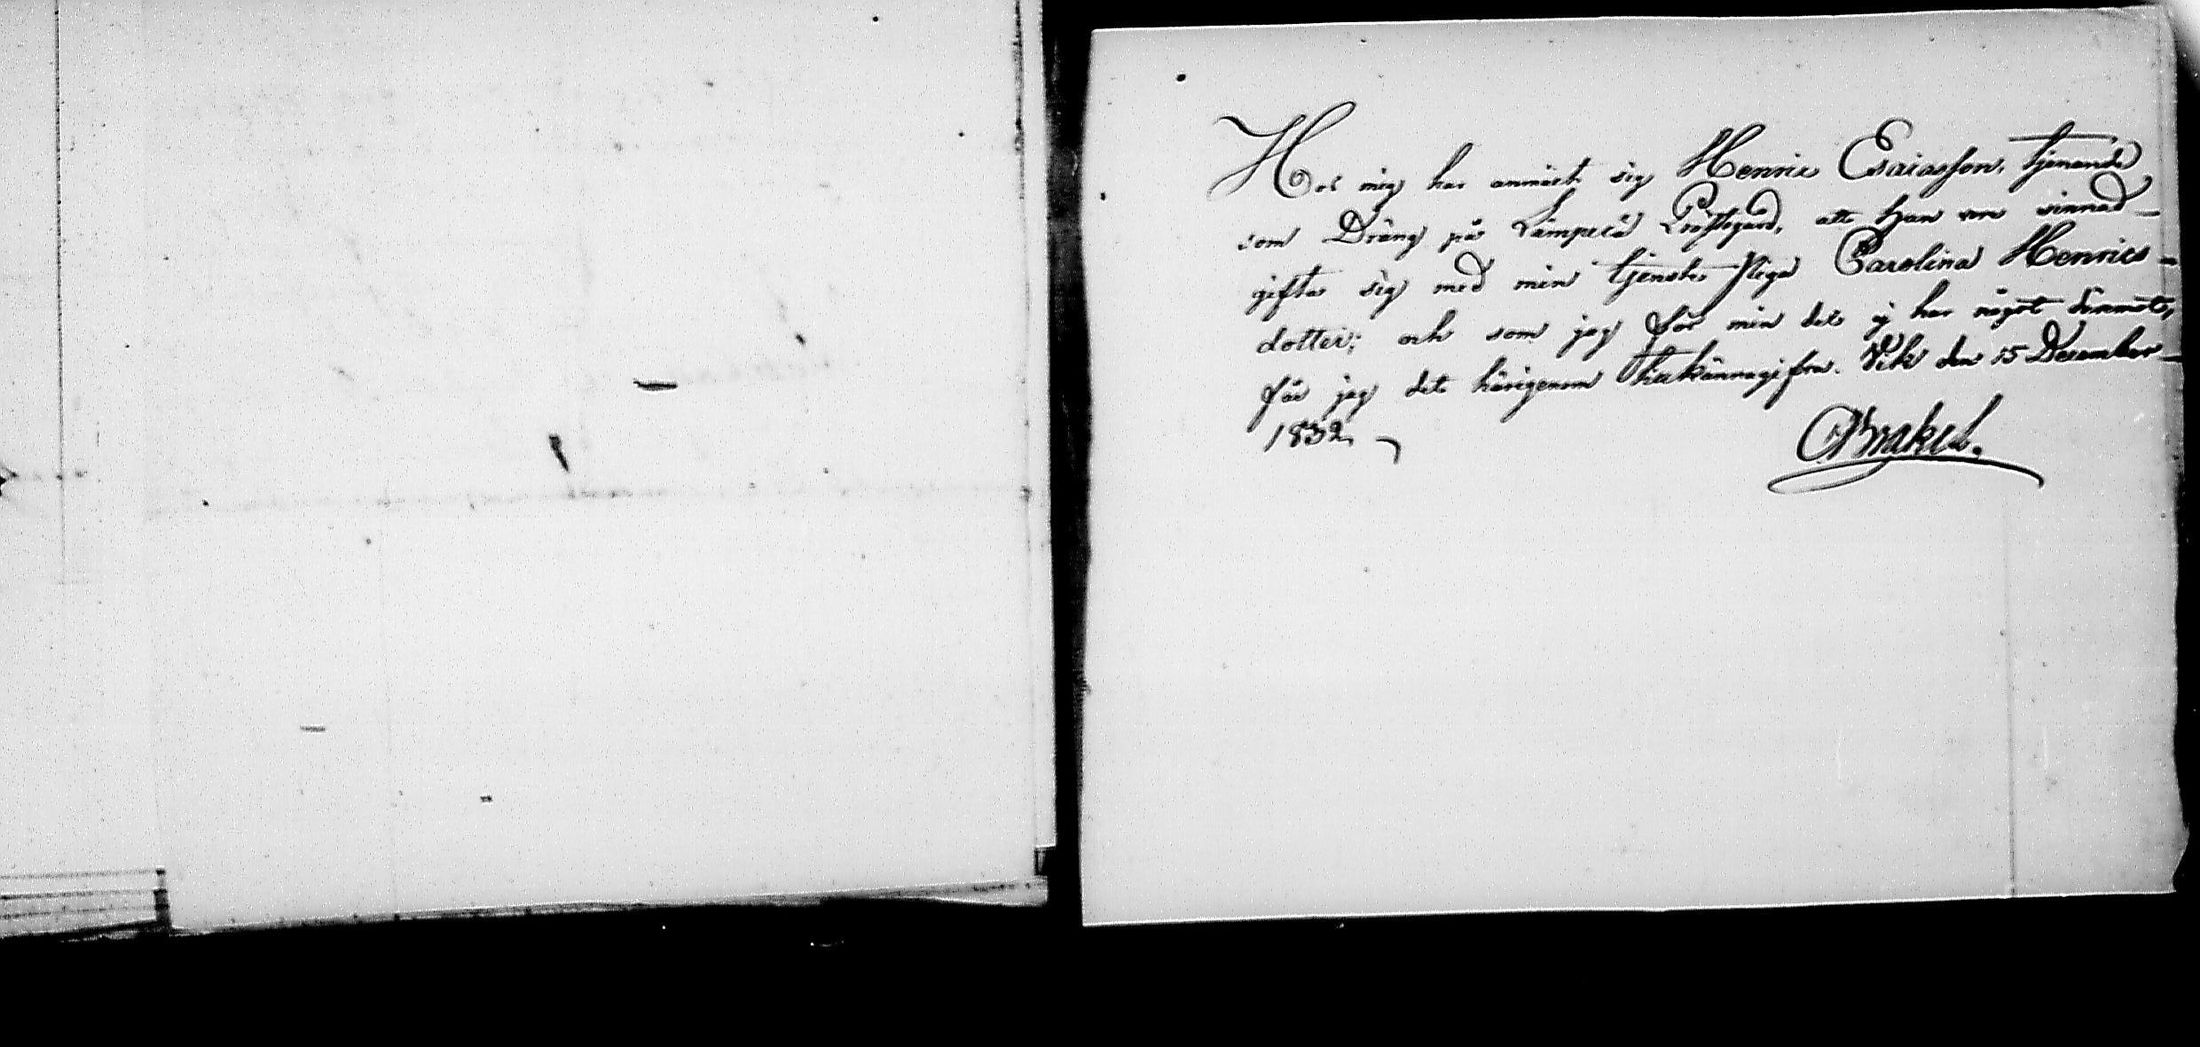 Hos mig har anmält sig Henric Esaiasson, tjenande
som Dräng på Lämpelä Prästgård, att han vore sinnad
gifta sig med min tjenste Piga Carolina Henrics-
dotter; och som jag för min del ej har något däremot,
får jag det härigenom tillkännagifva. Vik den 15 December
1832.